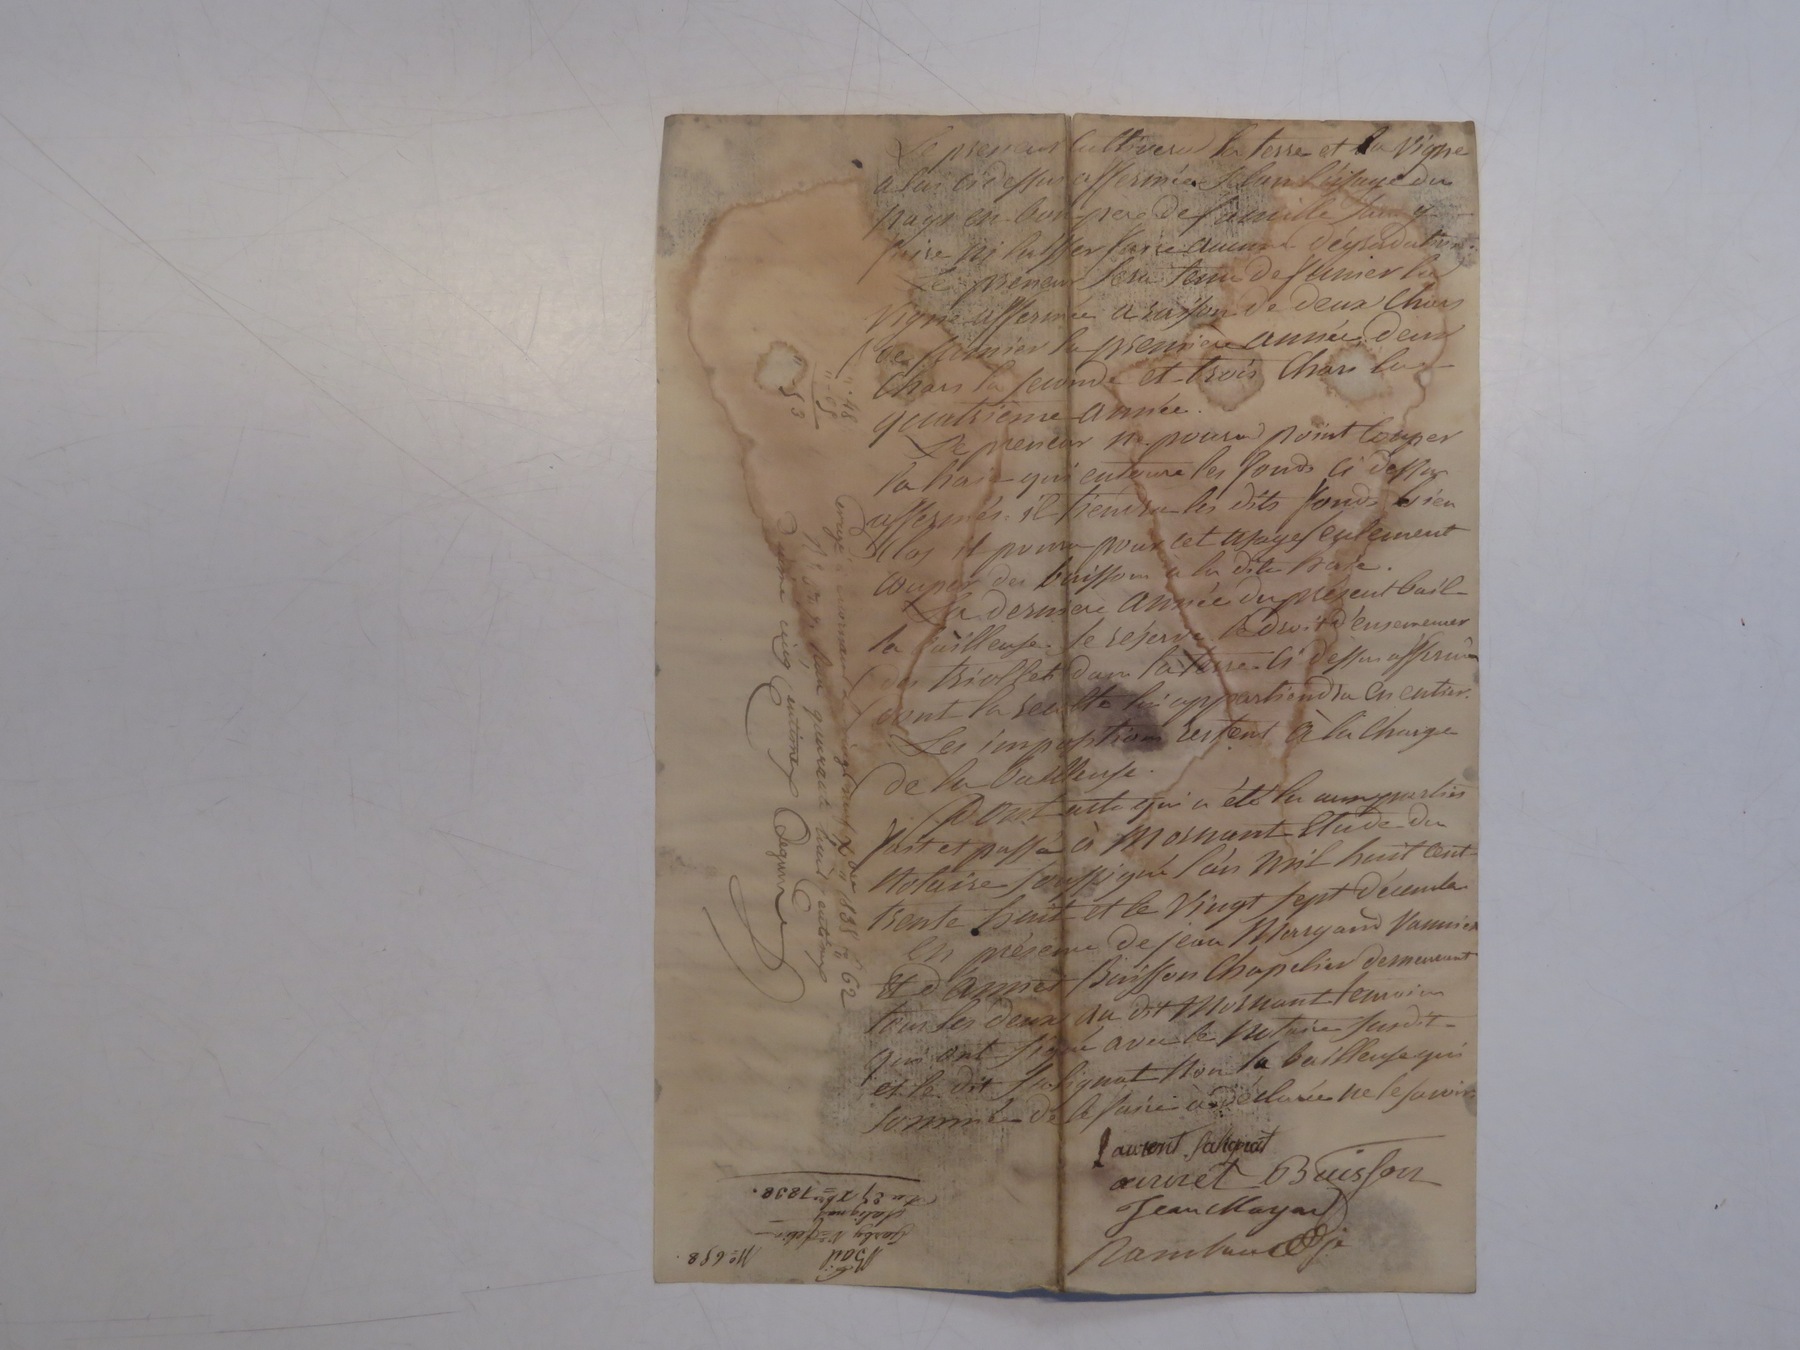 Le preneur cultivera la terre et la vigne
a lui ci dessus affermées selon l'usage du
pays en bon père de famille sans y
faire ni laisser faire aucune dégradation.
Le preneur sera tenu de fumier la
vigne affermée a raison de deux chars
de fumier la première année, deux
chars la seconde et trois chars la
quatrième année.
Le preneur ne poura point couper
la haie qui entoure les fonds ci dessus
affermés. il tiendra les dits fonds bien
clos et poura pour cet usage seulement
couper des buissons a la dite haie.
La dernière année du présent bail
la bailleuse se réserve le droit d'ensemencer
du triollet dans la terre ci dessus affermée
dont la recolte lui appartiendra en entier.
Les impositions restent à la charge
de la bailleuse.
Dont acte qui a été lu aux parties
fait et passé à Mornant étude du
notaire soussigné l'an mil huit cent
trente huit et le vingt sept décembre
En présence de Jean Mayand vannier
et d'annet Buisson chapelier demeurant
tous les deux au dit Mornant temoins
qui ont signé avec le notaire susdit
et le dit Salignat non la bailleuse qui
sommée de le faire a déclarée ne le savoir
Laurent Salignat
annet Buisson
Jean Mayand
" 48
" 05
" 53
Mornant 1838 fo 62
quarante huit centimes
Décime cinq centimes
No 698.
Bail
Salignat
Du 27 Xbre 1838.